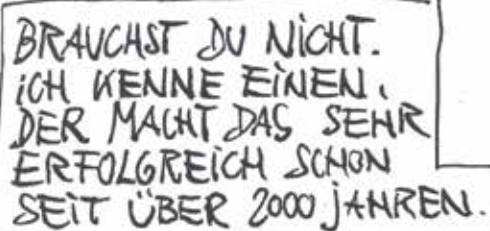 BRAUCHST DU NICHT.
ICH KENNE EINEN,
DER MACHT DAS SEHR
ERFOLGREICH SCHON
SEIT ÜBER 2000 JAHREN.